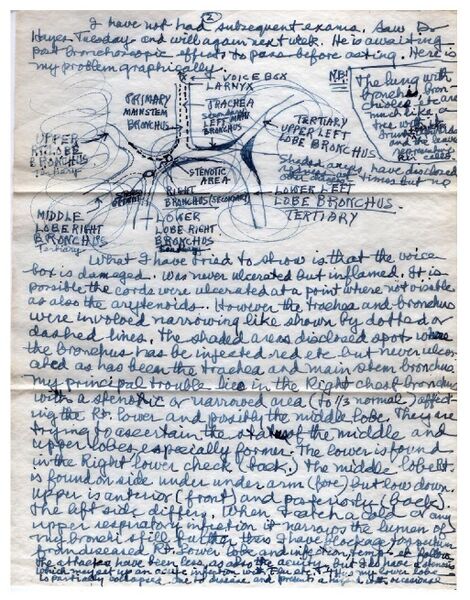 2
I have not had subsequent exams. Saw Dr
Hayes Tuesday and will again next week. He is awaiting
post bronchoscopic effects to pass before acting. Here is
my problem graphically.
VOICE BOX
LARNYX
TRACHEA
LEFT MAIN
BRONCHUS
PRIMARY
MAINSTEM
BRONCHUS
NB!
The lung with
bronchi & bron-
chioles etc are
much like a
tree with
and the leaves
TERTIARY
UPPER LEFT
LOBE BRONCHUS
Shaded areas have disclosed
times but no
UPPER
RT. LOBE
BRONCHUS
Tertiary
STENOTIC
AREA
RIGHT
BRONCHUS (SECONDARY)
LOWER LEFT
LOBE BRONCHUS
TERTIARY
MIDDLE
LOBE RIGHT
BRONCHUS
Tertiary
LOWER
LOBE RIGHT
BRONCHUS
What I have tried to show is that the voice
box is damaged. Was never ulcerated but inflamed. It is
possible the cords were ulcerated at a point where not visible
as also the arytenoids. However the trachea and bronchus
were involved narrowing like shown by dotted or
dashed lines. The shaded areas disclosed spots where
the bronchus has be injested red etc but never ulcer-
ated as has been the trachea and main stem bronchus.
My principal trouble lies in the Right chest bronchus
with a stenotic or narrowed area (to 1/3 normal) affect-
ing the Rt. lower and possibly the middle lobe. They are
trying to ascertain the status of the middle and
upper lobes especially former. The lower is found
in the Right lower check (back.) The middle lobe it
is found on side under under arm (fore) but low down.
upper is anterior (front) and posteriorly (back).
The left side differs. When I catch a cold or any
upper respiratory infection it narrows the lumen of
my bronchi still further then I have blockage to
from diseased Rt. Lower lobe and infection, temp. et follow
the attacks have been less, as as to the acuity, but I do have a stenosis
which may set up an acute infection with Flu etc. My lower lobe
is partially collapsed due to disease and